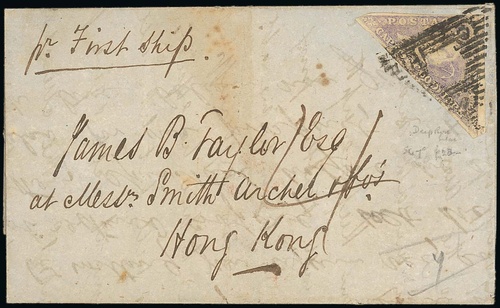 pr First Ship.
POSTAGE
James B. Taylor Esq
at Messrs Smith Archer & Co's
Hong Kong